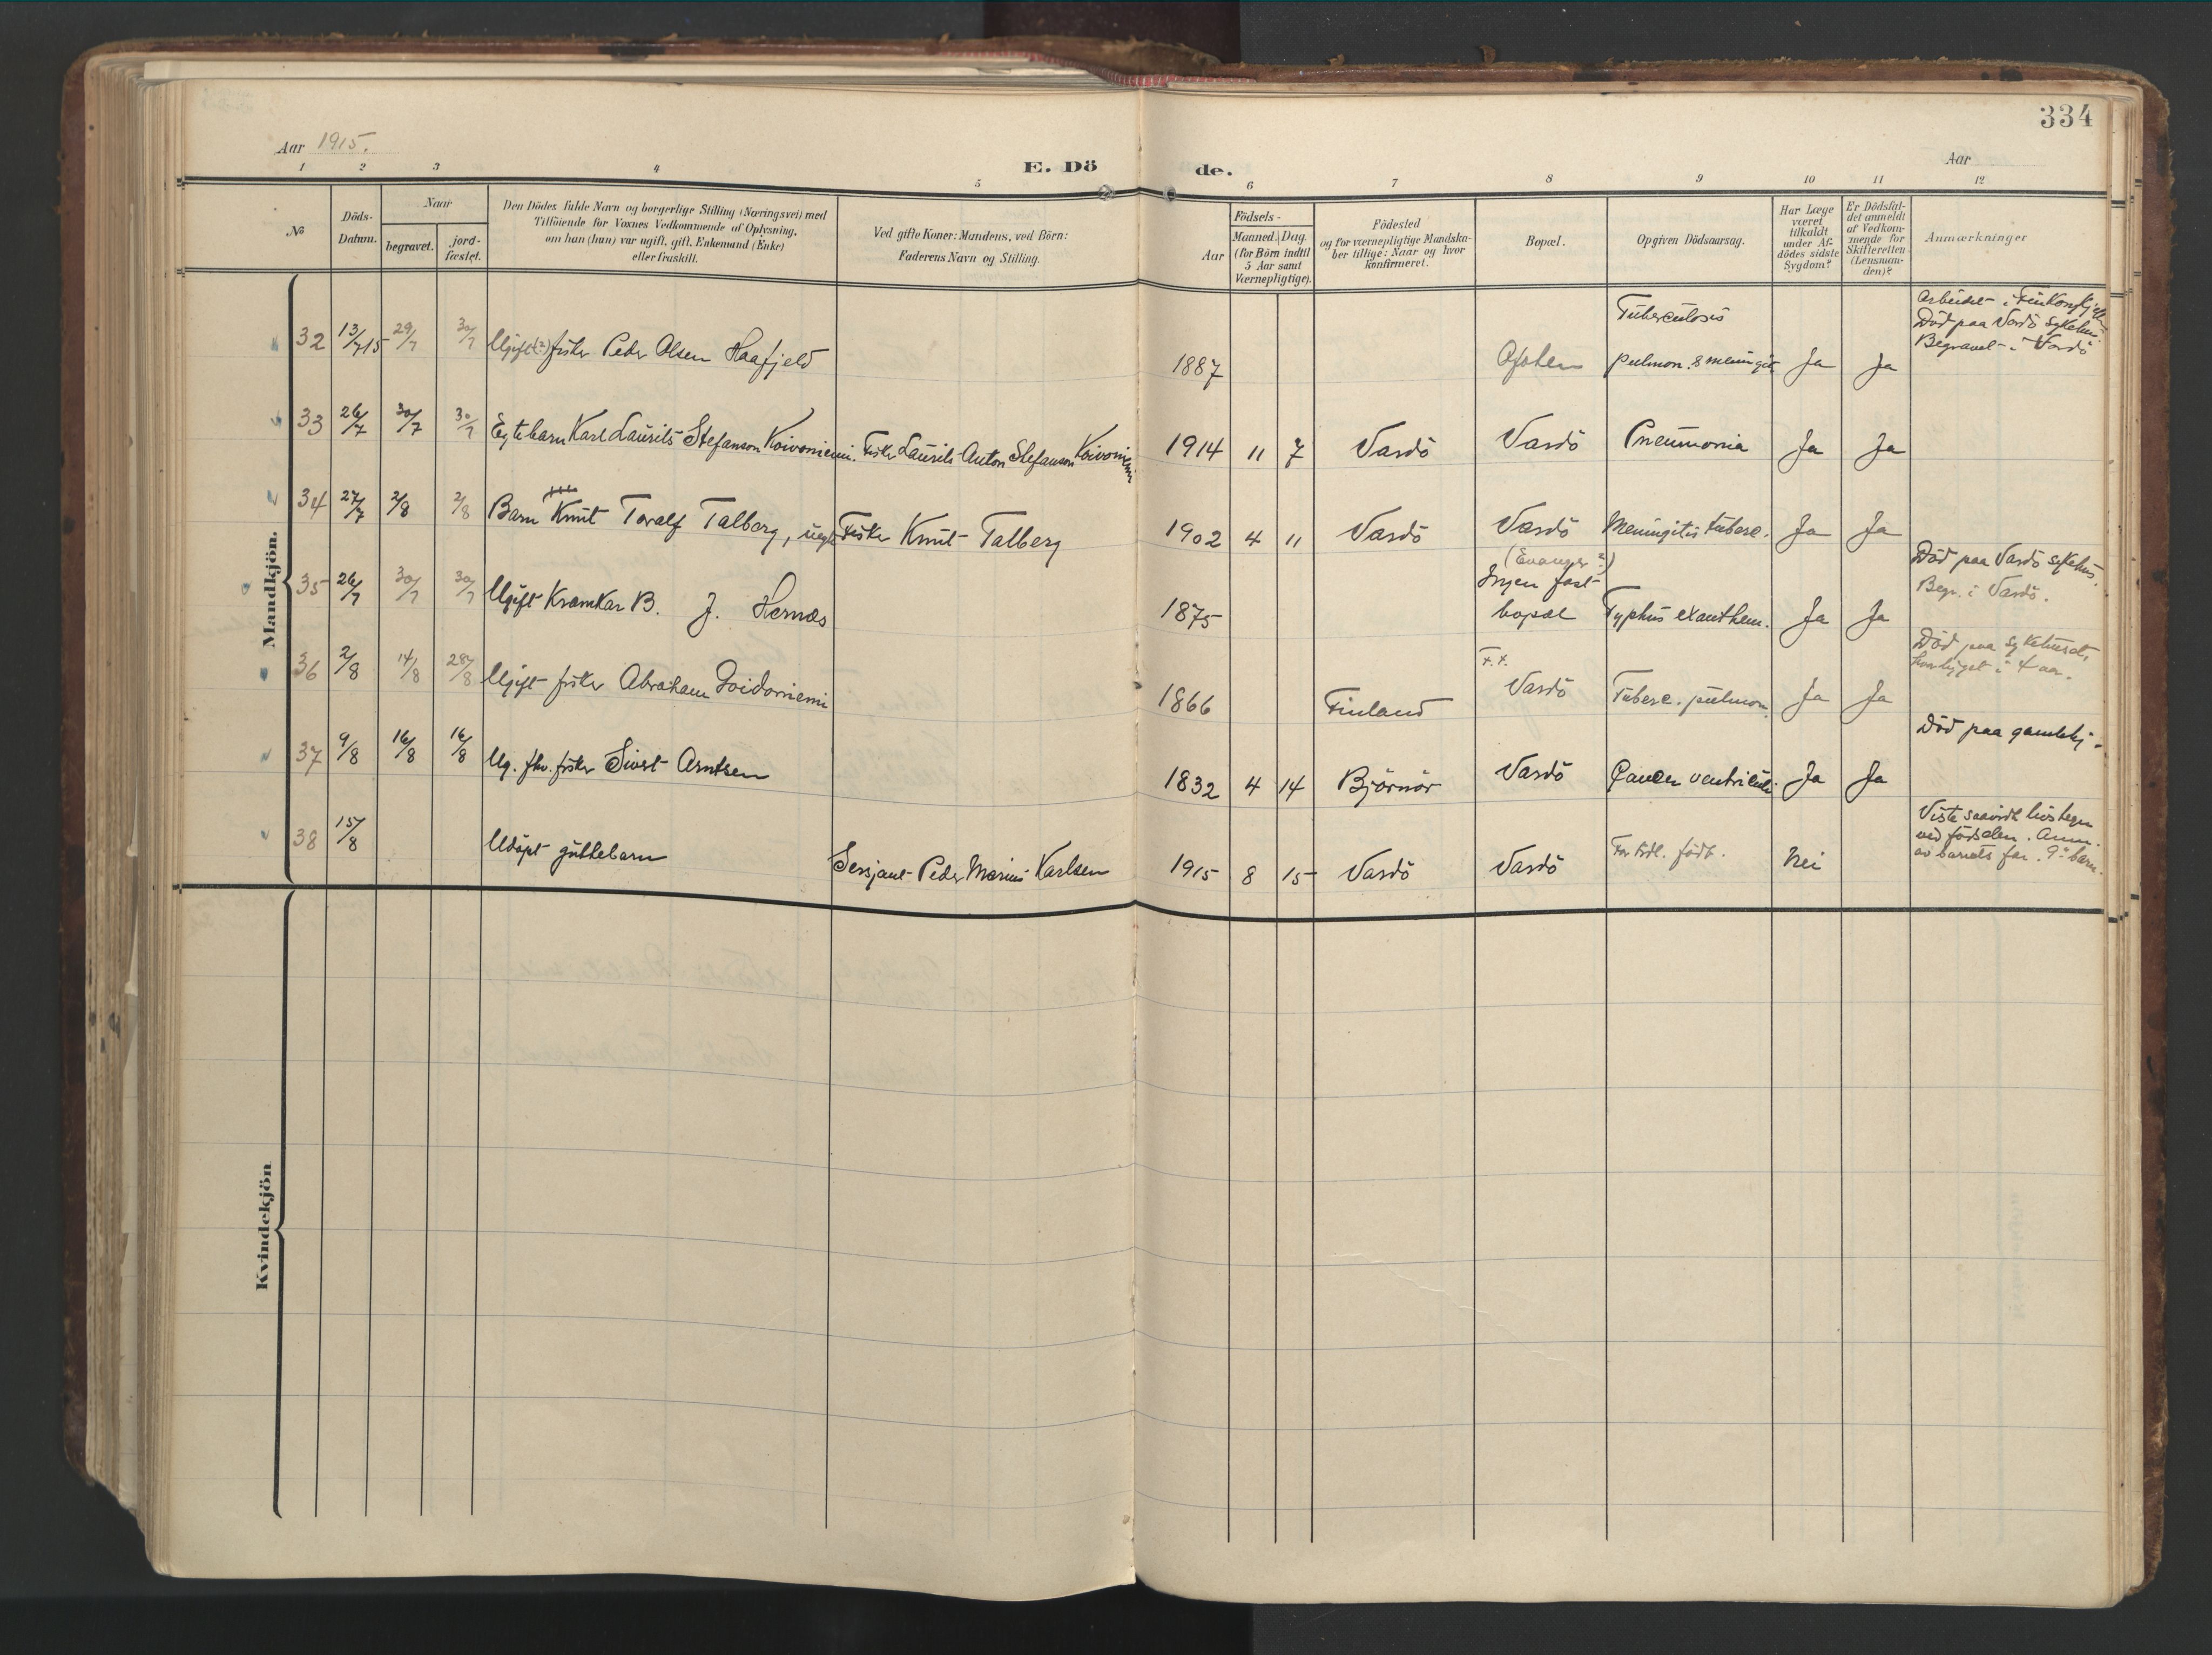 334
Aar 1915.
Aar
E. Dö de.
1 2 3 4 5 6 7 8 9 10 11 12
No
Döds-
Datum.
Naar
begravet.
jord-
fæstet.
Den Dödes fulde Navn og borgerlige Stilling (Næringsvei) med
Tilföiende for Voxnes Vedkommende af Oplysning,
om han (hun) var ugift, gift, Enkemand (Enke)
eller fraskilt.
Ved gifte Koner: Mandens, ved Börn:
Faderens Navn og Stilling.
Födsels-
Aar
Maaned. Dag.
(for Börn indtil
5 Aar samt
Værnepligtige).
Födested
og for værnepligtige Mandska-
ber tillige: Naar og hvor
konfirmeret.
Bopæl.
Opgiven Dödsaarsag.
Har Læge
været
tilkaldt
under Af-
dödes sidste
Sygdom?
Er Dödsfal-
det anmeldt
af Vedkom-
mende for
Skifteretten
(Lensman-
den)?
Anmærkninger
Mandkjön.
32 13/7 15 29/7 30/7 Ugift (?) fisker Peder Olsen Haafjeld 1887 Ofoten Tuberculosis
pulmon. & meningit. Ja Ja
Död paa Vardö sykehus.
Begravet i Vardö
33 26/7 30/7 30/7 Egtebarn Karl Laurits Stefanson Koivoniemi. Fisker Laurits Anton Stefanson Koivoniemi 1914 11 7 Vardö Vardö Pneumonia Ja Ja
34 27/7 2/8 2/8 Barn Knut Toralf Talberg, uegte Fisker Knut Talberg 1902 4 11 Vardö Vardö Meningitis tuberc. Ja Ja
35 26/7 30/7 30/7 Ugift Kramkar B. J. Hernæs 1875 (Evanger?)
Ingen fast
bopæl Typhus exanthem. Ja Ja Död paa Vardö sykehus.
Begr. i Vardö.
36 2/8 14/8 28/8 Ugift fisker Abraham 1866 Finland F.t.
Vardö Tuberc. pulmon. Ja Ja Död paa sykehuset,
i 4 aar.
37 9/8 16/8 16/8 Ug. fhv. fisker Sivert Arntsen 1832 4 14 Björnör Vardö Cancer ventriculi Ja Ja Död paa gamlehj.
38 15/8 Udöpt guttebarn Sersjant Peder Marius Karlsen 1915 8 15 Vardö Vardö For tidl. födt. Nei
Viste saavidt livstegn
ved födselen. Anm.
av barnets far. 9de barn.
Kvindekjön